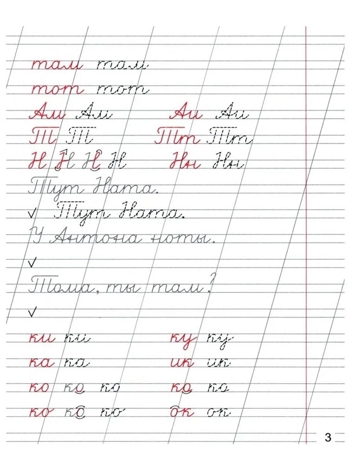 там там
тот тот
Ам Ам Аи Аи
Т Т Тт Тт
Н Н Н Н Н Нн Нн
Тут Ната.
✓ Тут Ната.
У Антона ноты.
✓
Тома, ты там?
✓
ки ки ку ку
ка ка ик ик
ко ко ко ко ко
ко ко ко ок ок
3